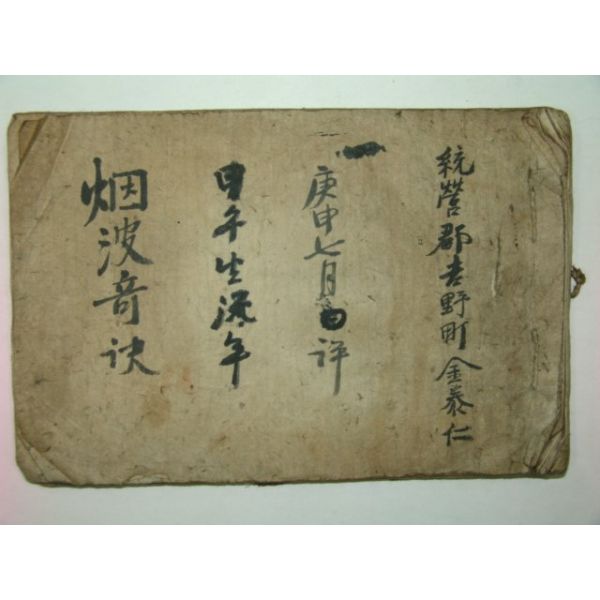 統營郡吉野町 金泰仁
庚申七月
甲午生流年
烟波竒訣